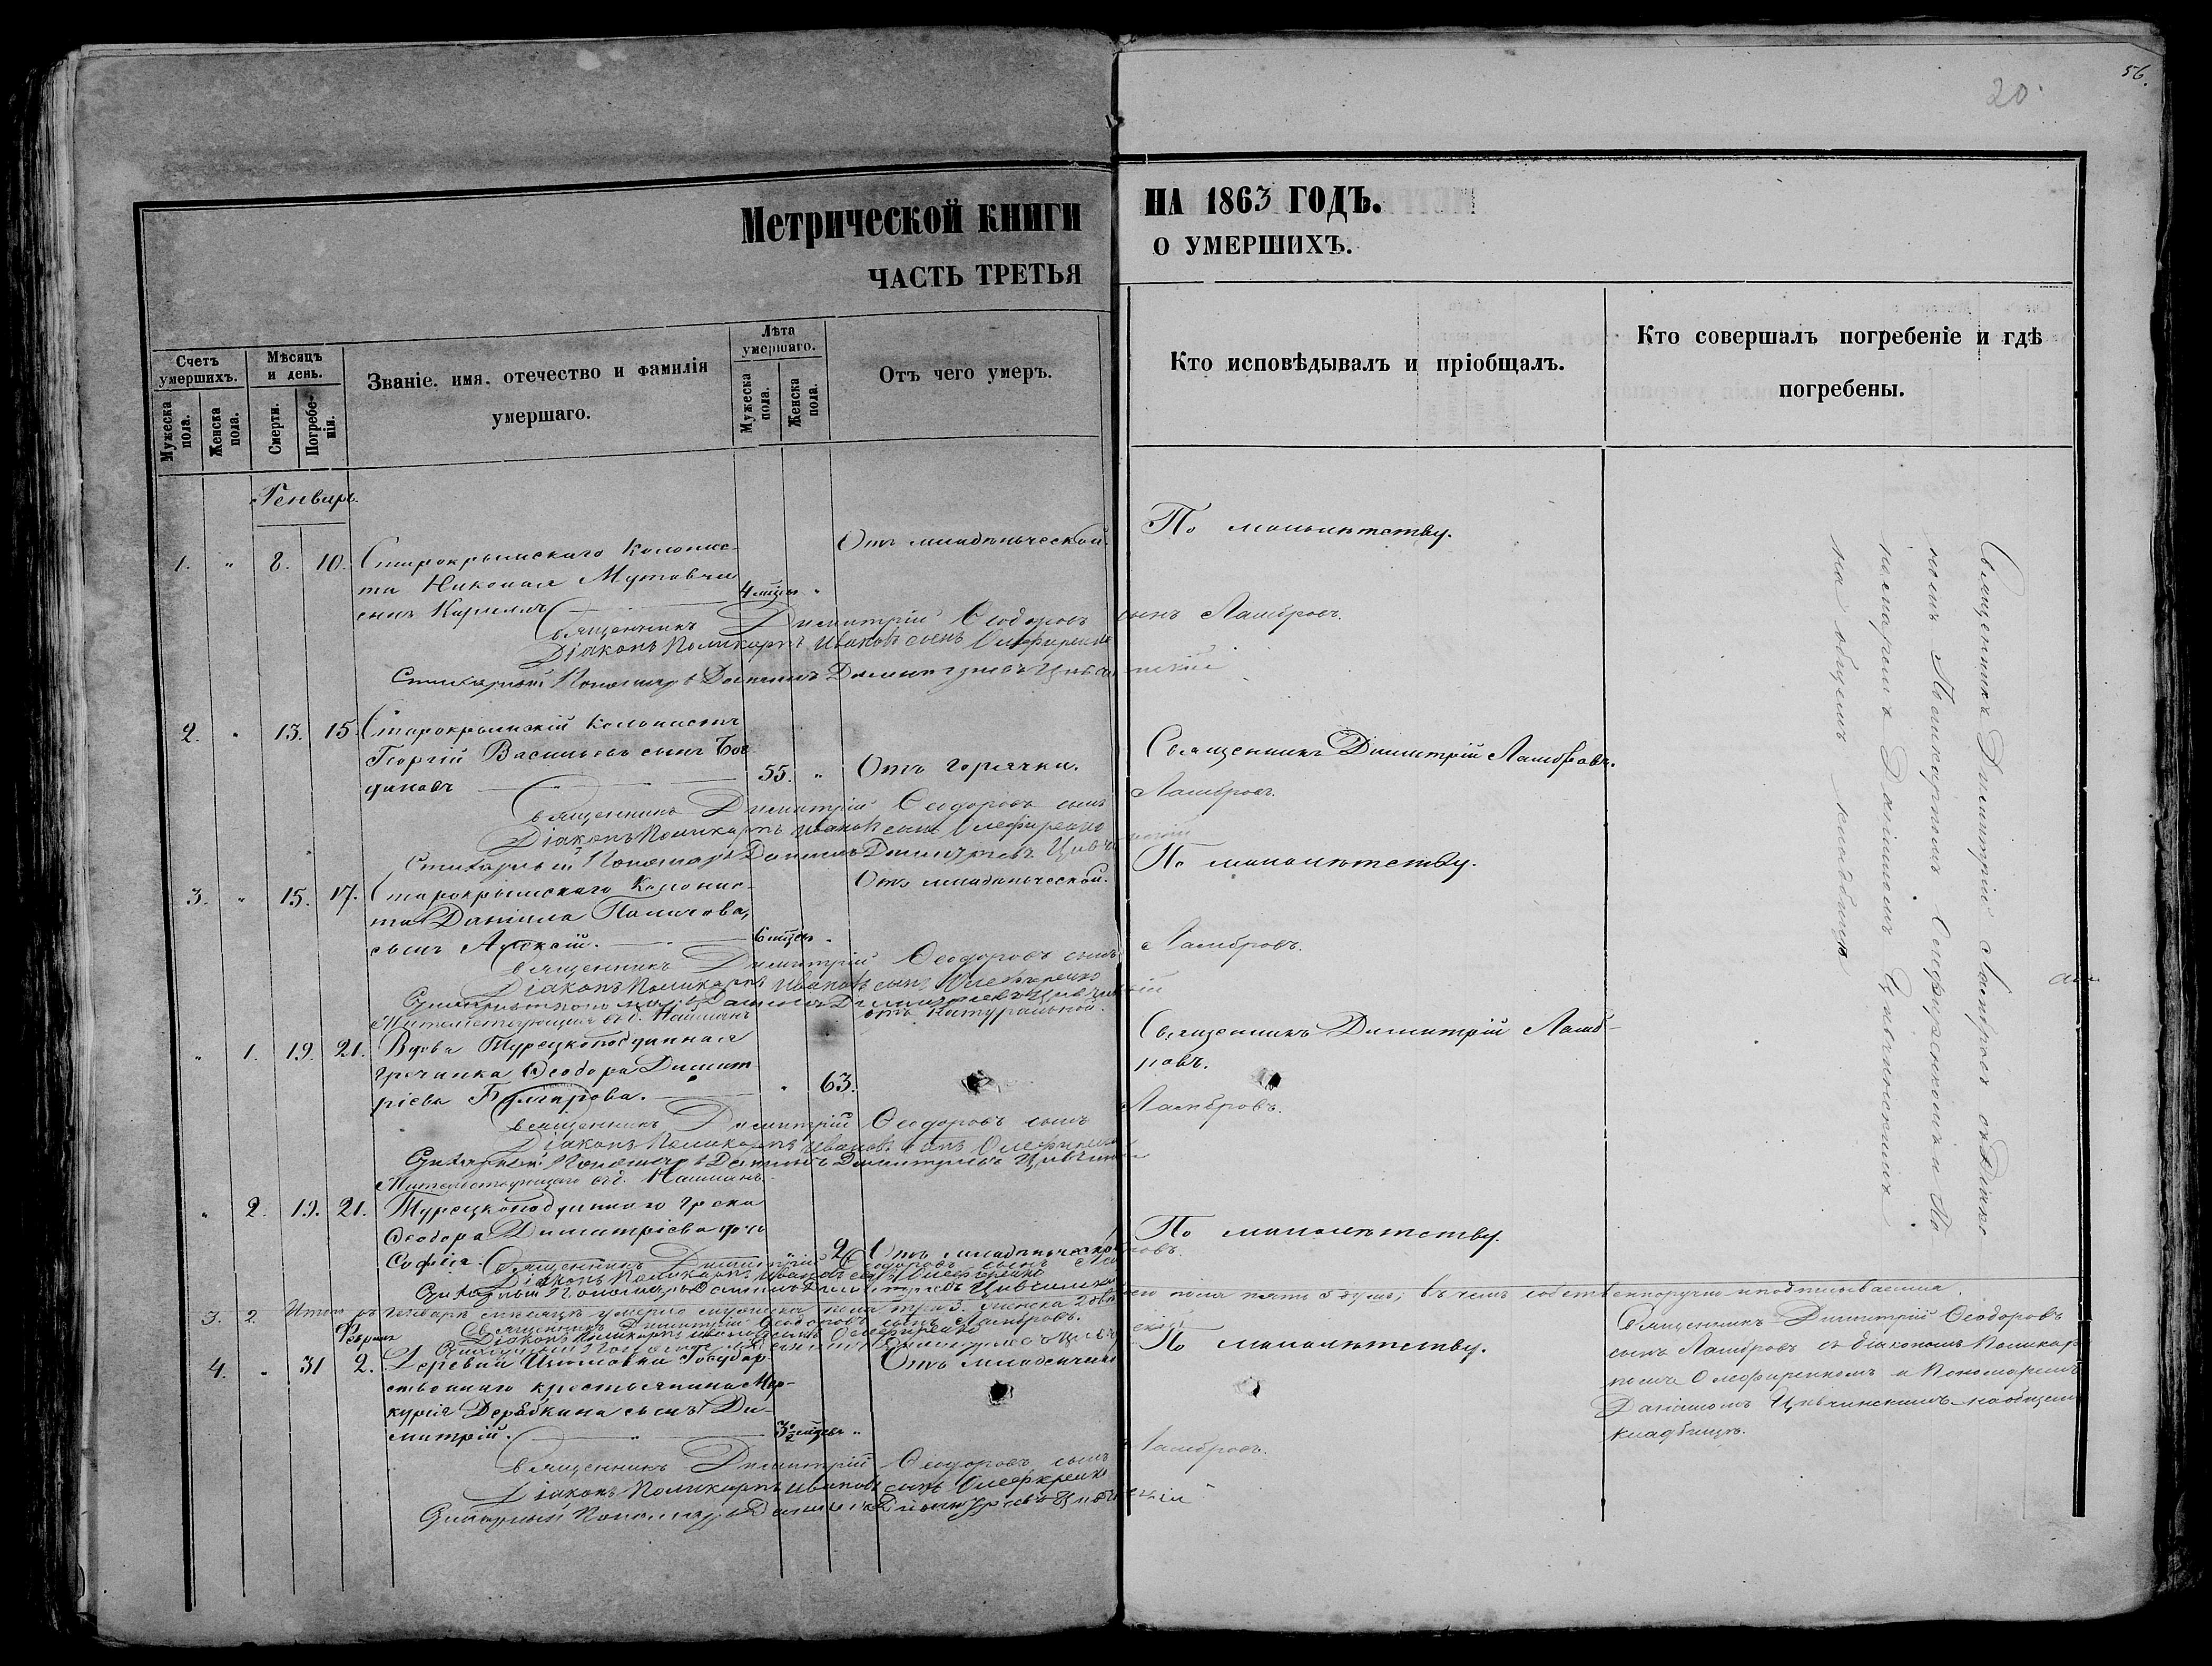 56.
20
Метрической книги
НА 1863 ГОДЪ.
ЧАСТЬ ТРЕТЬЯ
О УМЕРШИХЪ.
Счетъ умершихъ.
Мужеска пола.
Женска пола.
Мѣсяцъ и день.
Смерти.
Погребенія.
Званіе. имя. отечество и фамилія умершаго.
Лѣта умершаго.
Мужеска пола.
Женска пола.
Отъ чего умеръ.
Кто исповѣдывалъ и пріобщалъ.
Кто совершалъ погребеніе и гдѣ погребены.
Генварь.
1. " 8. 10. Старокрымскаго Колонис- Отъ младенческой. По малолѣтству.
та Николая
сынъ Кириллъ 4 мѣсяц "
Священникъ Димитрій Ѳеодоровъ сынъ Ламбровъ.
Діаконъ Поликарпъ Ивановъ сынъ Олефиренко
Стихарный Пономарь Даніилъ Димитріевъ
2. " 13. 15. Старокрымскій Колонистъ
Георгій Васильевъ сынъ Бог-
дановъ 55. " Отъ горячки. Священникъ Димитрій Ламбровъ.
Священникъ Димитрій Ѳеодоровъ сынъ Ламбровъ.
Діаконъ Поликарпъ Ивановъ сынъ Олефиренко
Стихарный Пономарь Даніилъ Димитріевъ
3. " 15. 17. Старокрымскаго Колонис- Отъ младенческой. По малолѣтству.
та Даніила
сынъ Алексій. 6 мѣсяц "
Священникъ Димитрій Ѳеодоровъ сынъ Ламбровъ.
Діаконъ Поликарпъ Ивановъ сынъ Олефиренко
Стихарный Пономарь Даніилъ Димитріевъ
отъ натуральной.
" 1. 19. 21. Вдова Турецкоподданная Священникъ Димитрій Ламб-
гречанка Ѳеодора Димит- ровъ.
ріева " 63.
Священникъ Димитрій Ѳеодоровъ сынъ Ламбровъ.
Діаконъ Поликарпъ Ивановъ сынъ Олефиренко
Стихарный Пономарь Даніилъ Димитріевъ
" 2. 19. 21. Турецкоподданнаго грека
Ѳеодора Димитріева дочь По малолѣтству.
Софія. " 2 Отъ младенческой
Священникъ Димитрій Ѳеодоровъ сынъ
Діаконъ Поликарпъ Ивановъ сынъ Олефиренко
Стихарный Пономарь Даніилъ Димитріевъ
3. 2 Итого въ Генварѣ мѣсяцѣ умерло мужеска пола три 3. женска 2 обоего пола пять 5 душъ; въ чемъ собственноручно и подписываемся.
Священникъ Димитрій Ѳеодоровъ сынъ Ламбровъ.
Діаконъ Поликарпъ Ивановъ сынъ Олефиренко
Февраль
4. " 31 2. Деревни Изюмовки Государ- Отъ младенческой По малолѣтству.
ственнаго крестьянина Мер-
курія Деребкина сынъ Ди-
митрій. 3½ мѣсяц "
Священникъ Димитрій Ѳеодоровъ сынъ Ламбровъ.
Діаконъ Поликарпъ Ивановъ сынъ Олефиренко
Стихарный Пономарь Даніилъ Димитріевъ
Священникъ Димитрій Ламбровъ съ Діако-
номъ Поликарпомъ Олефиренкомъ и По
номаремъ Даніиломъ
на общемъ кладбищѣ
Священникъ Димитрій Ѳеодоровъ
сынъ Ламбровъ съ діакономъ Поликар
помъ Олефиренкомъ и Пономаремъ
Даніиломъ на общемъ
кладбищѣ.